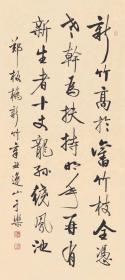 新竹高於舊竹枝全憑
老幹為扶持明年再有
新生者十丈龍孫繞鳳池
鄭板橋新竹辛丑